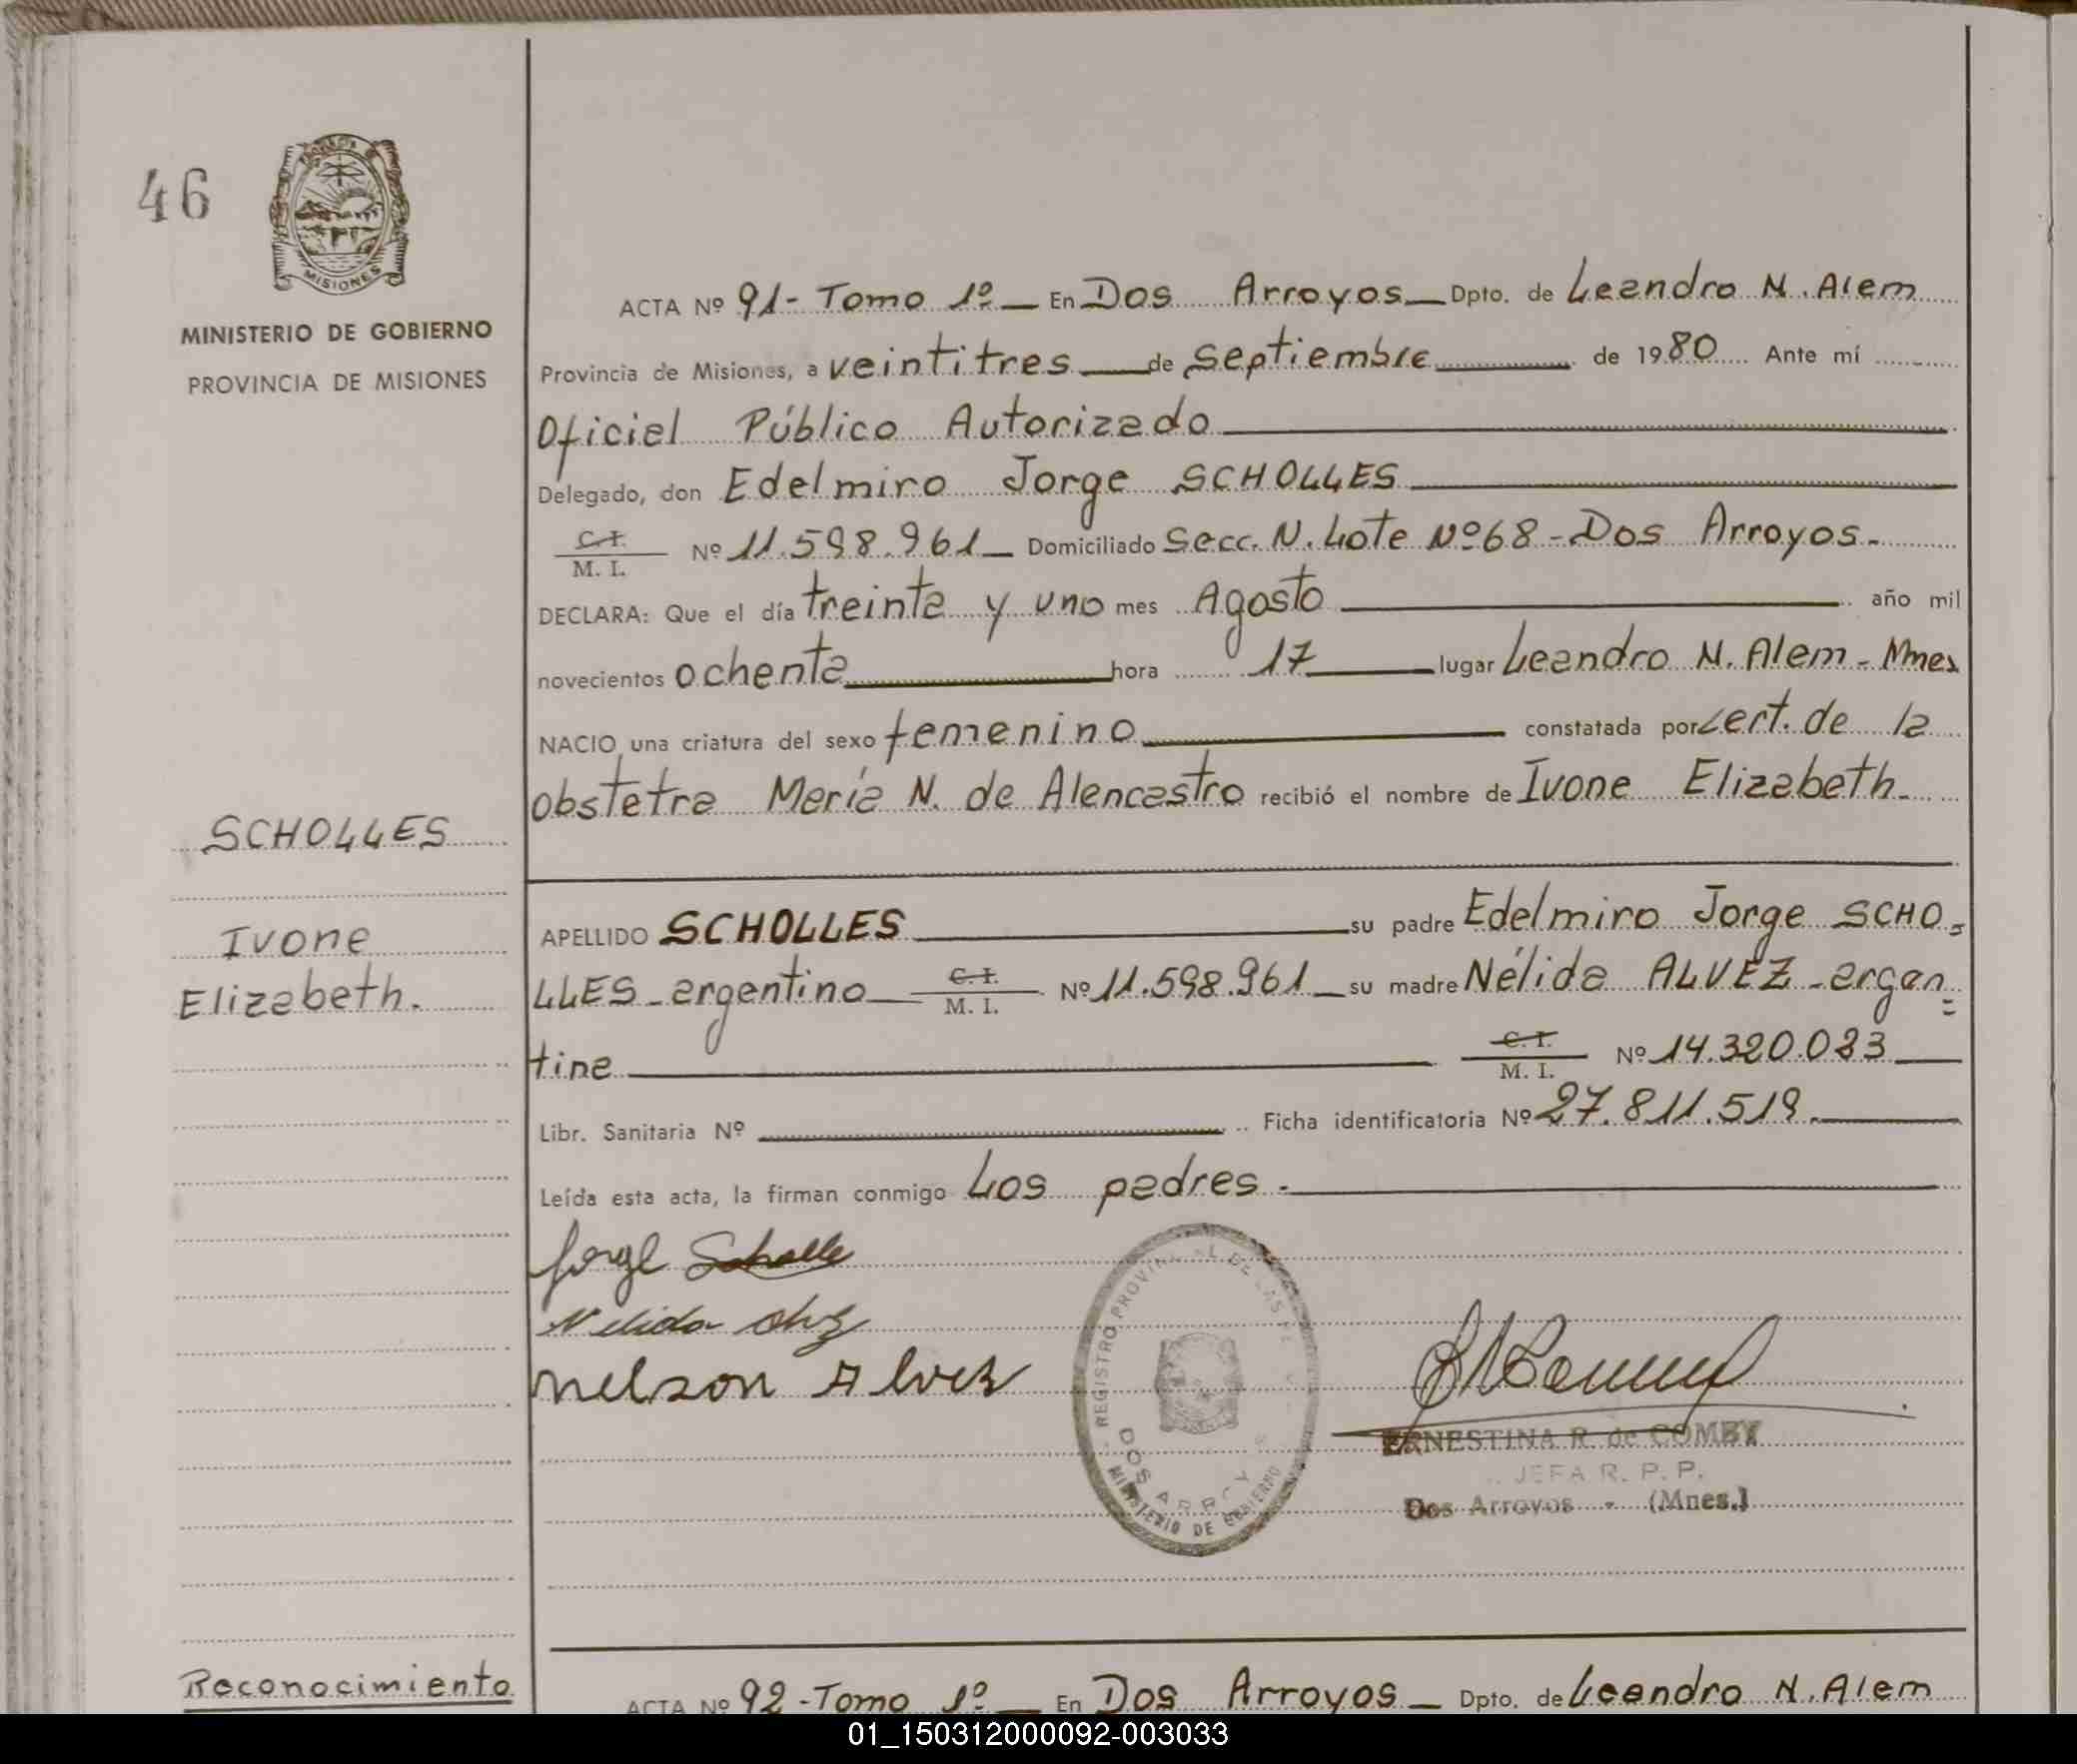 46
MISIONES
MINISTERIO DE GOBIERNO
PROVINCIA DE MISIONES
ACTA Nº 91- Tomo 1º — En Dos Arroyos — Dpto. de Leandro N. Alem
Provincia de Misiones, a veintitres — de Septiembre — de 1980 Ante mí
Oficial Público Autorizado
Delegado, don Edelmiro Jorge SCHOLLES
C. I.
M. I. Nº 11.598.961 — Domiciliado Secc. N. Lote Nº 68 - Dos Arroyos.
DECLARA: Que el día treinta y uno mes Agosto — año mil
novecientos ochenta — hora 17 — lugar Leandro N. Alem - Mnes
NACIO una criatura del sexo femenino — constatada por cert. de la
obstetra María N. de Alencastro recibió el nombre de Ivone Elizabeth.
SCHOLLES
Ivone
Elizabeth.
APELLIDO SCHOLLES — su padre Edelmiro Jorge SCHO=
LLES - argentino — C. I. M. I. Nº 11.598.961 — su madre Nélida ALVEZ - argen=
tina — C. I. M. I. Nº 14.320.083
Libr. Sanitaria Nº — Ficha identificatoria Nº 27.811.519
Leída esta acta, la firman conmigo Los padres.
Jorge Scholle
Nelida Alvez
Nelson Alvez
REGISTRO PROVINCIAL DE LAS
DOS ARROYOS
MINISTERIO DE GOBIERNO
ERNESTINA R. de COMBY
JEFA R. P. P.
Dos Arroyos - (Mnes.)
Reconocimiento
ACTA Nº 92 - Tomo 1º — En Dos Arroyos — Dpto. de Leandro N. Alem
01_150312000092-003033